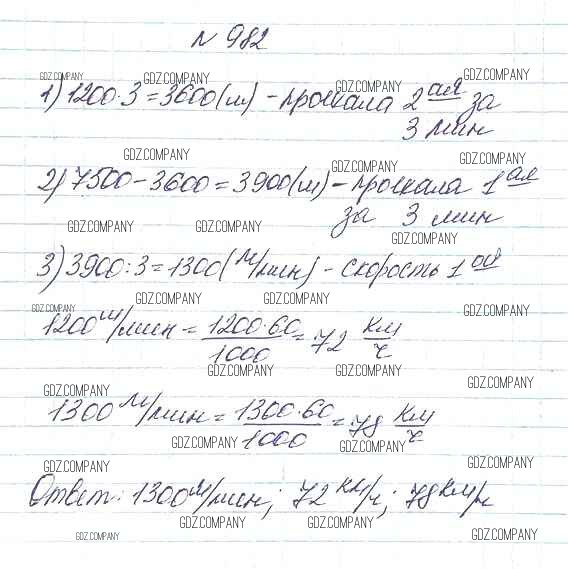 № 982
GDZ.COMPANY GDZ.COMPANY GDZ.COMPANY GDZ.COMPANY
1) 1200·3=3600(м) - проехала 2ая за
3 мин
GDZ.COMPANY GDZ.COMPANY GDZ.COMPANY
2) 7500-3600=3900(м) - проехала 1ая
за 3 мин
GDZ.COMPANY GDZ.COMPANY GDZ.COMPANY
3) 3900:3=1300(м/мин) - скорость 1ой
GDZ.COMPANY GDZ.COMPANY GDZ.COMPANY GDZ.COMPANY
1200 м/мин = 1200·60/1000 = 72 км/ч
GDZ.COMPANY GDZ.COMPANY GDZ.COMPANY GDZ.COMPANY
1300 м/мин = 1300·60/1000 = 78 км/ч
GDZ.COMPANY GDZ.COMPANY GDZ.COMPANY GDZ.COMPANY
Ответ: 1300 м/мин; 72 км/ч; 78 км/ч
GDZ.COMPANY GDZ.COMPANY GDZ.COMPANY GDZ.COMPANY